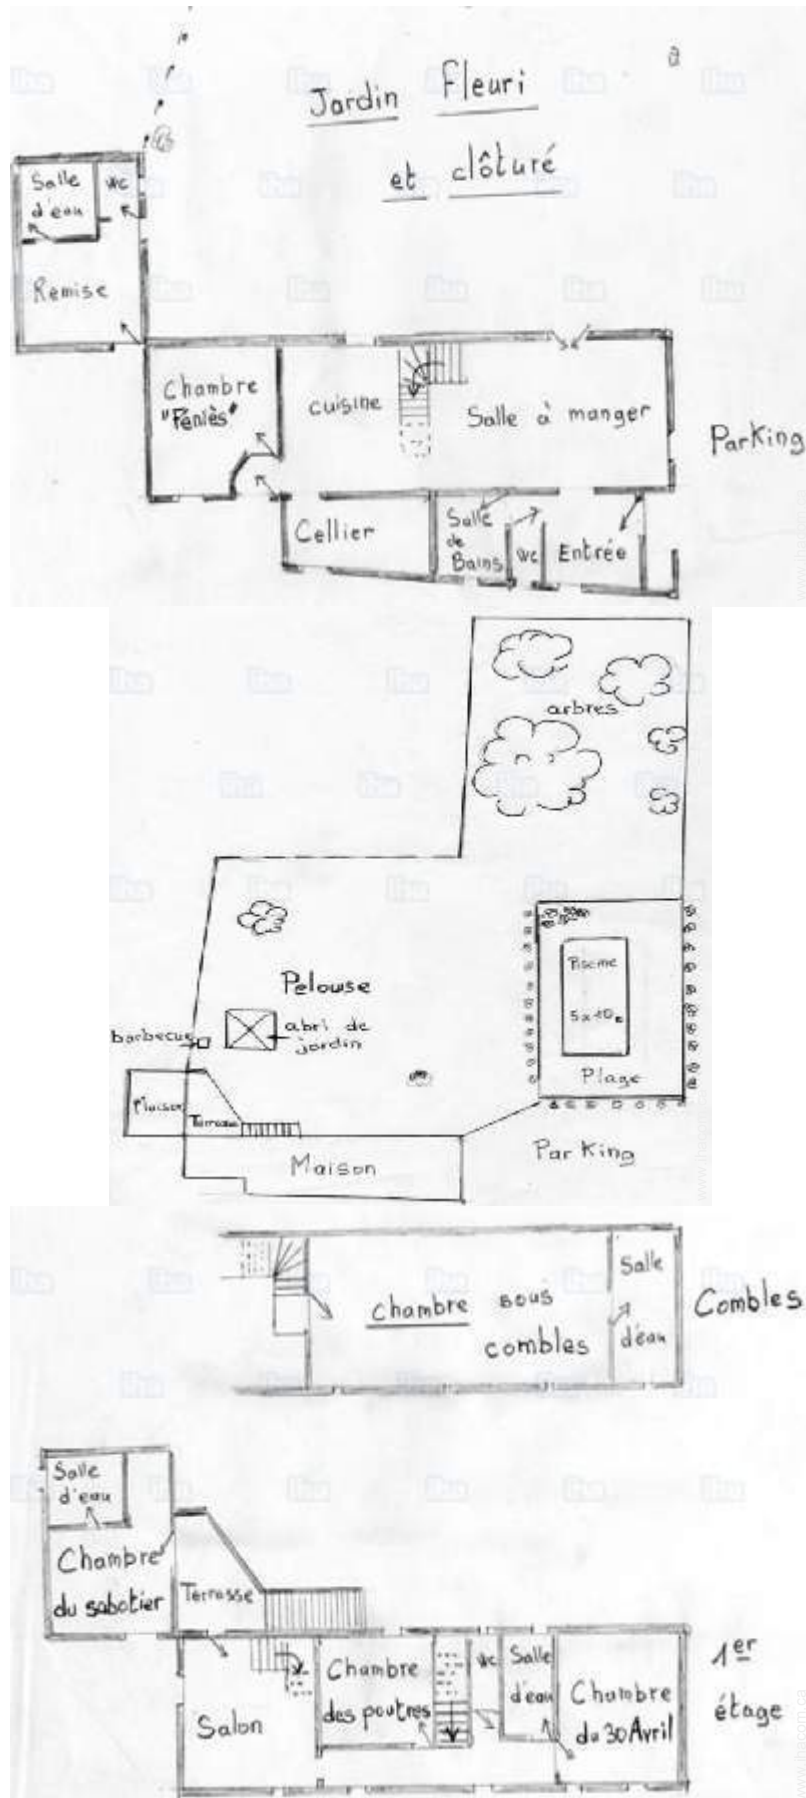 Jardin Fleuri
et clôturé
Salle
d'eau
WC
Remise
Chambre
"Féniès"
cuisine
Salle à manger
Parking
Cellier
Salle
de
Bains
WC
Entrée
arbres
Pelouse
Piscine
5x10m
barbecue
abri de
jardin
Plage
Maison
Terrasse
Maison
Parking
Chambre sous
combles
Salle
d'eau
Combles
Salle
d'eau
Chambre
du sabotier
Terrasse
Salon
Chambre
des poutres
WC
Salle
d'eau
Chambre
du 30 Avril
1er
étage
iha